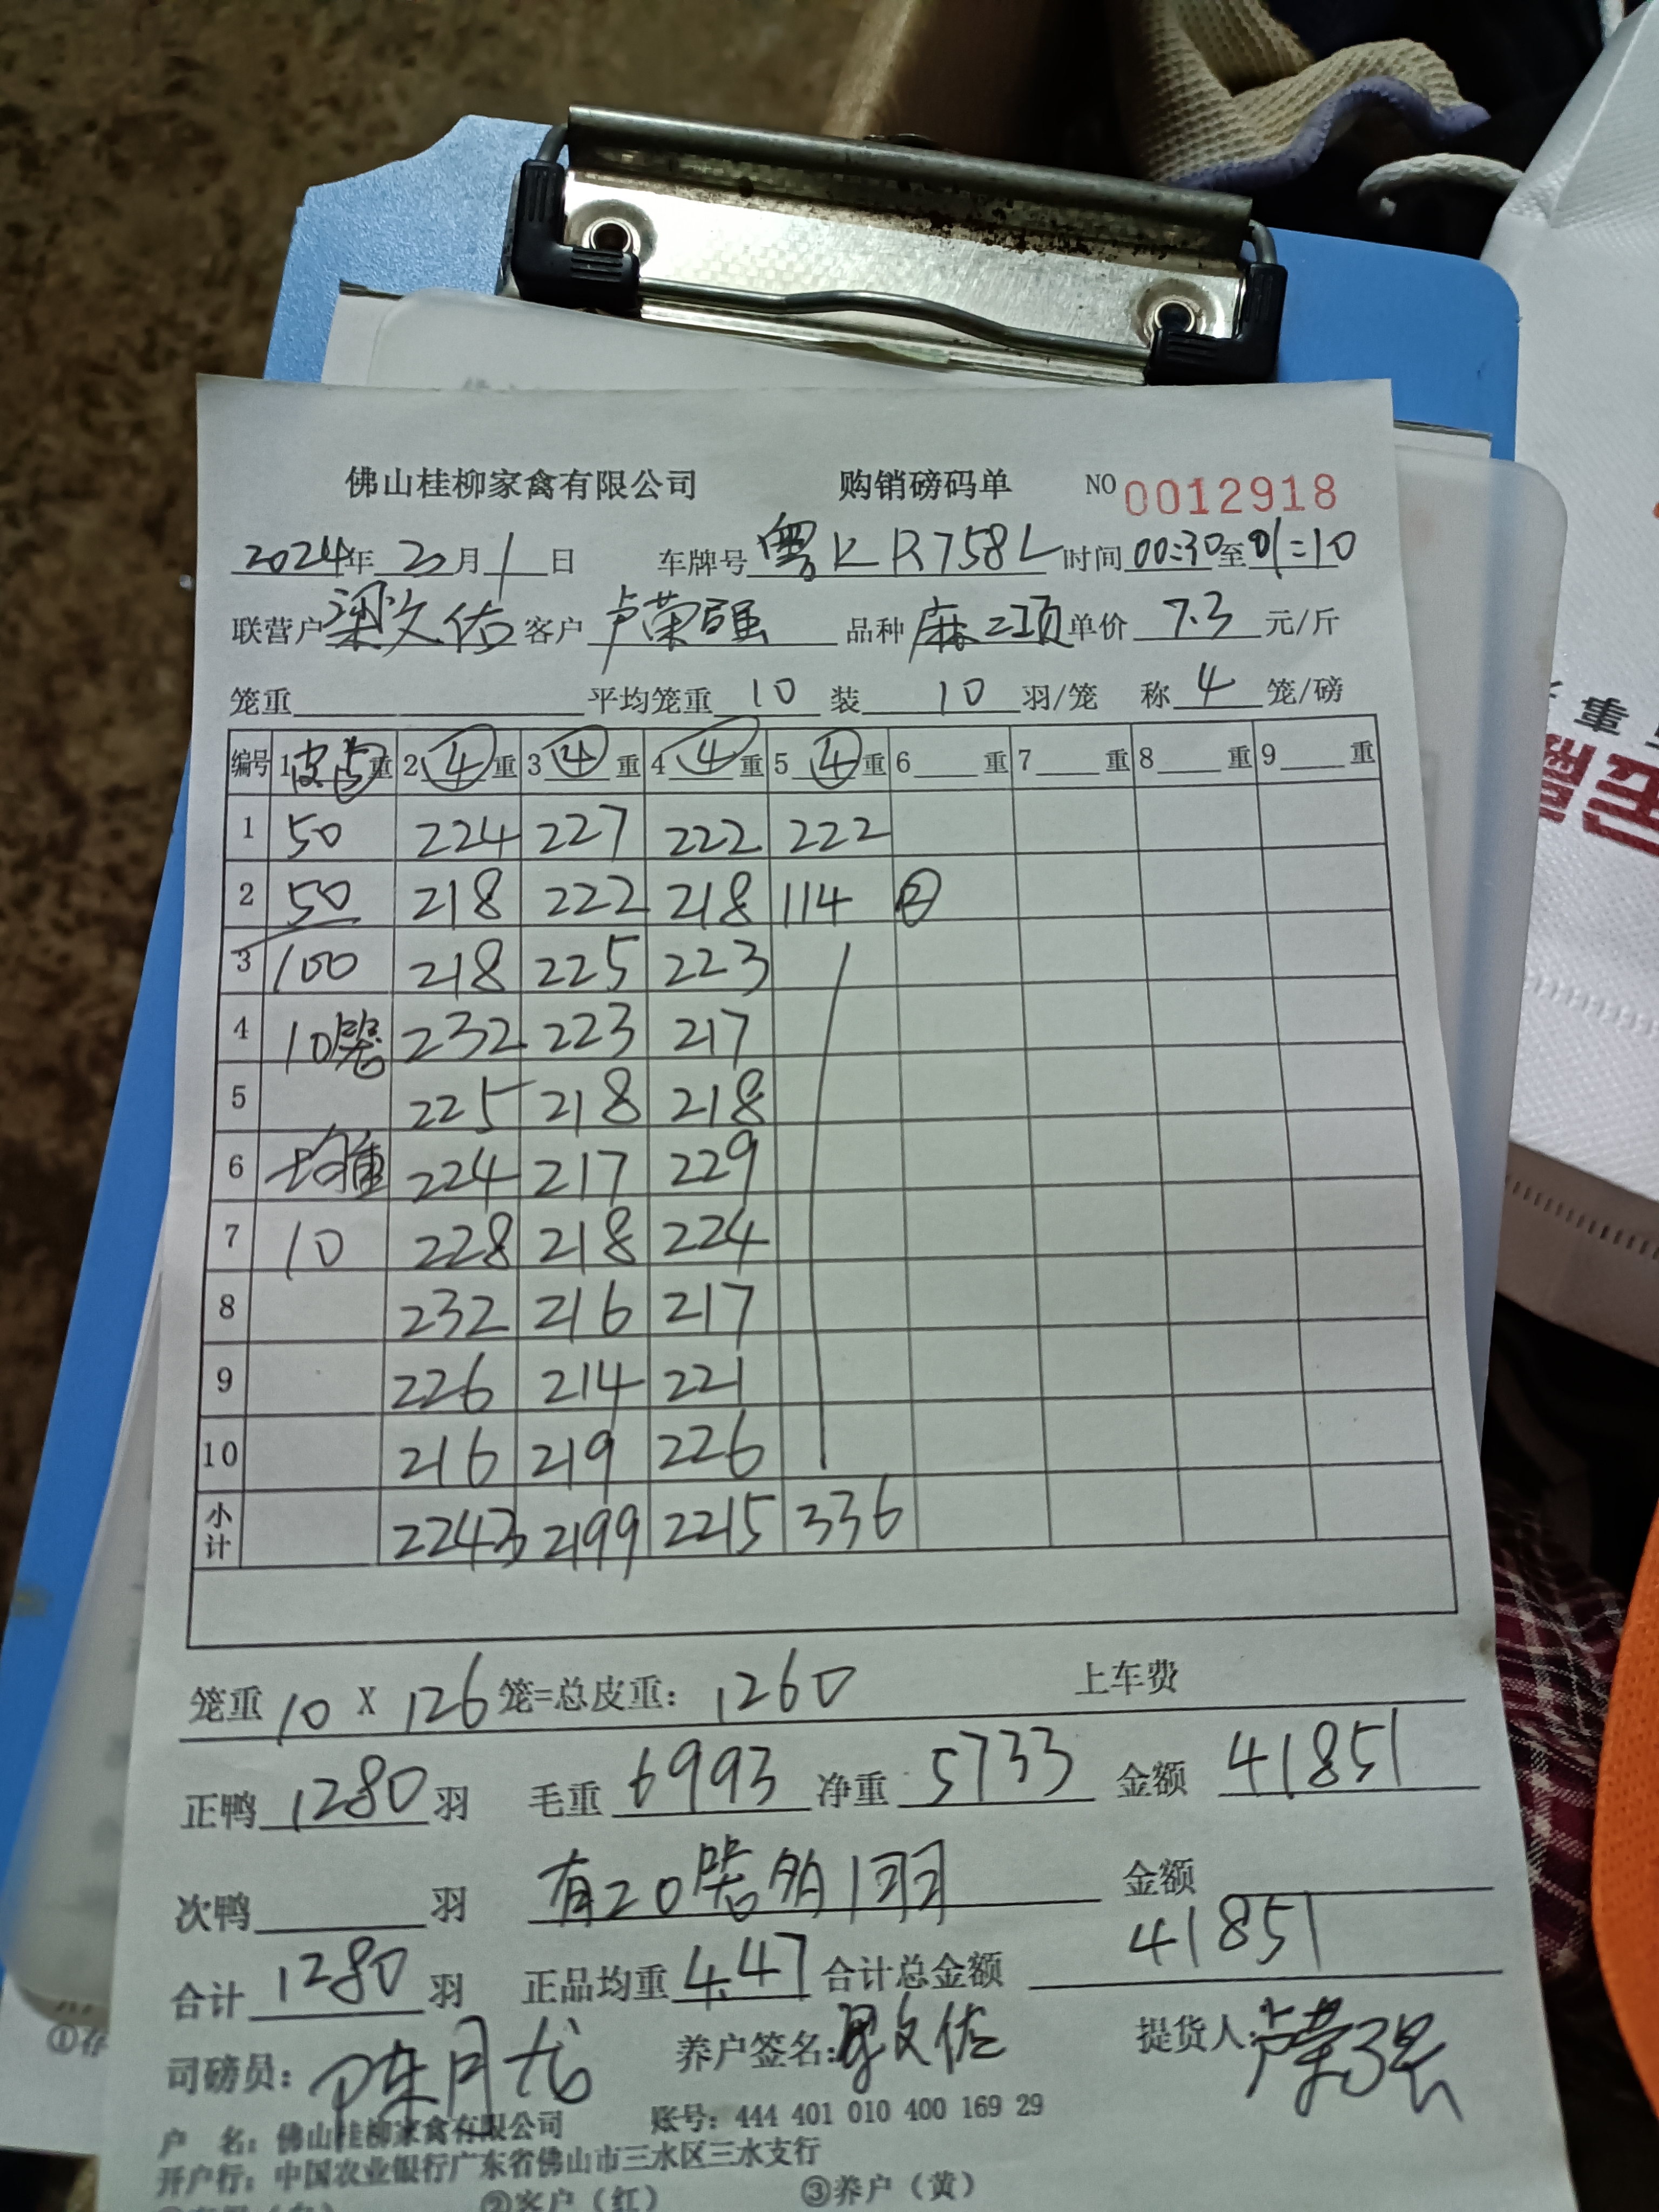 佛山桂柳家禽有限公司 购销磅码单 NO 0012918
2024年 2 月 1 日 车牌号 粤KR758L 时间 00:30 至 01:10
联营户 梁文佑 客户 卢荣强 品种 麻二项 单价 7.3 元/斤
笼重 平均笼重 10 装 10 羽/笼 称 4 笼/磅
编号 1 皮⑤ 重 2 ④ 重 3 ④ 重 4 ④ 重 5 ④ 重 6 重 7 重 8 重 9 重
1 50 224 227 222 222
2 50 218 222 218 114 ②
3 100 218 225 223
4 10笼 232 223 217
5 225 218 218
6 均重 224 217 229
7 10 228 218 224
8 232 216 217
9 226 214 221
10 216 219 226
小计 2243 2199 2215 336
笼重 10 X 126 笼=总皮重: 1260 上车费
正鸭 1280 羽 毛重 6993 净重 5733 金额 41851
次鸭 羽 有20笼多1羽 金额
合计 1280 羽 正品均重 4.47 合计总金额 41851
司磅员: 陈月龙 养户签名: 梁文佑 提货人: 卢荣强
户 名: 佛山桂柳家禽有限公司 账号: 444 401 010 400 169 29
开户行: 中国农业银行广东省佛山市三水区三水支行
②客户(红) ③养户(黄)